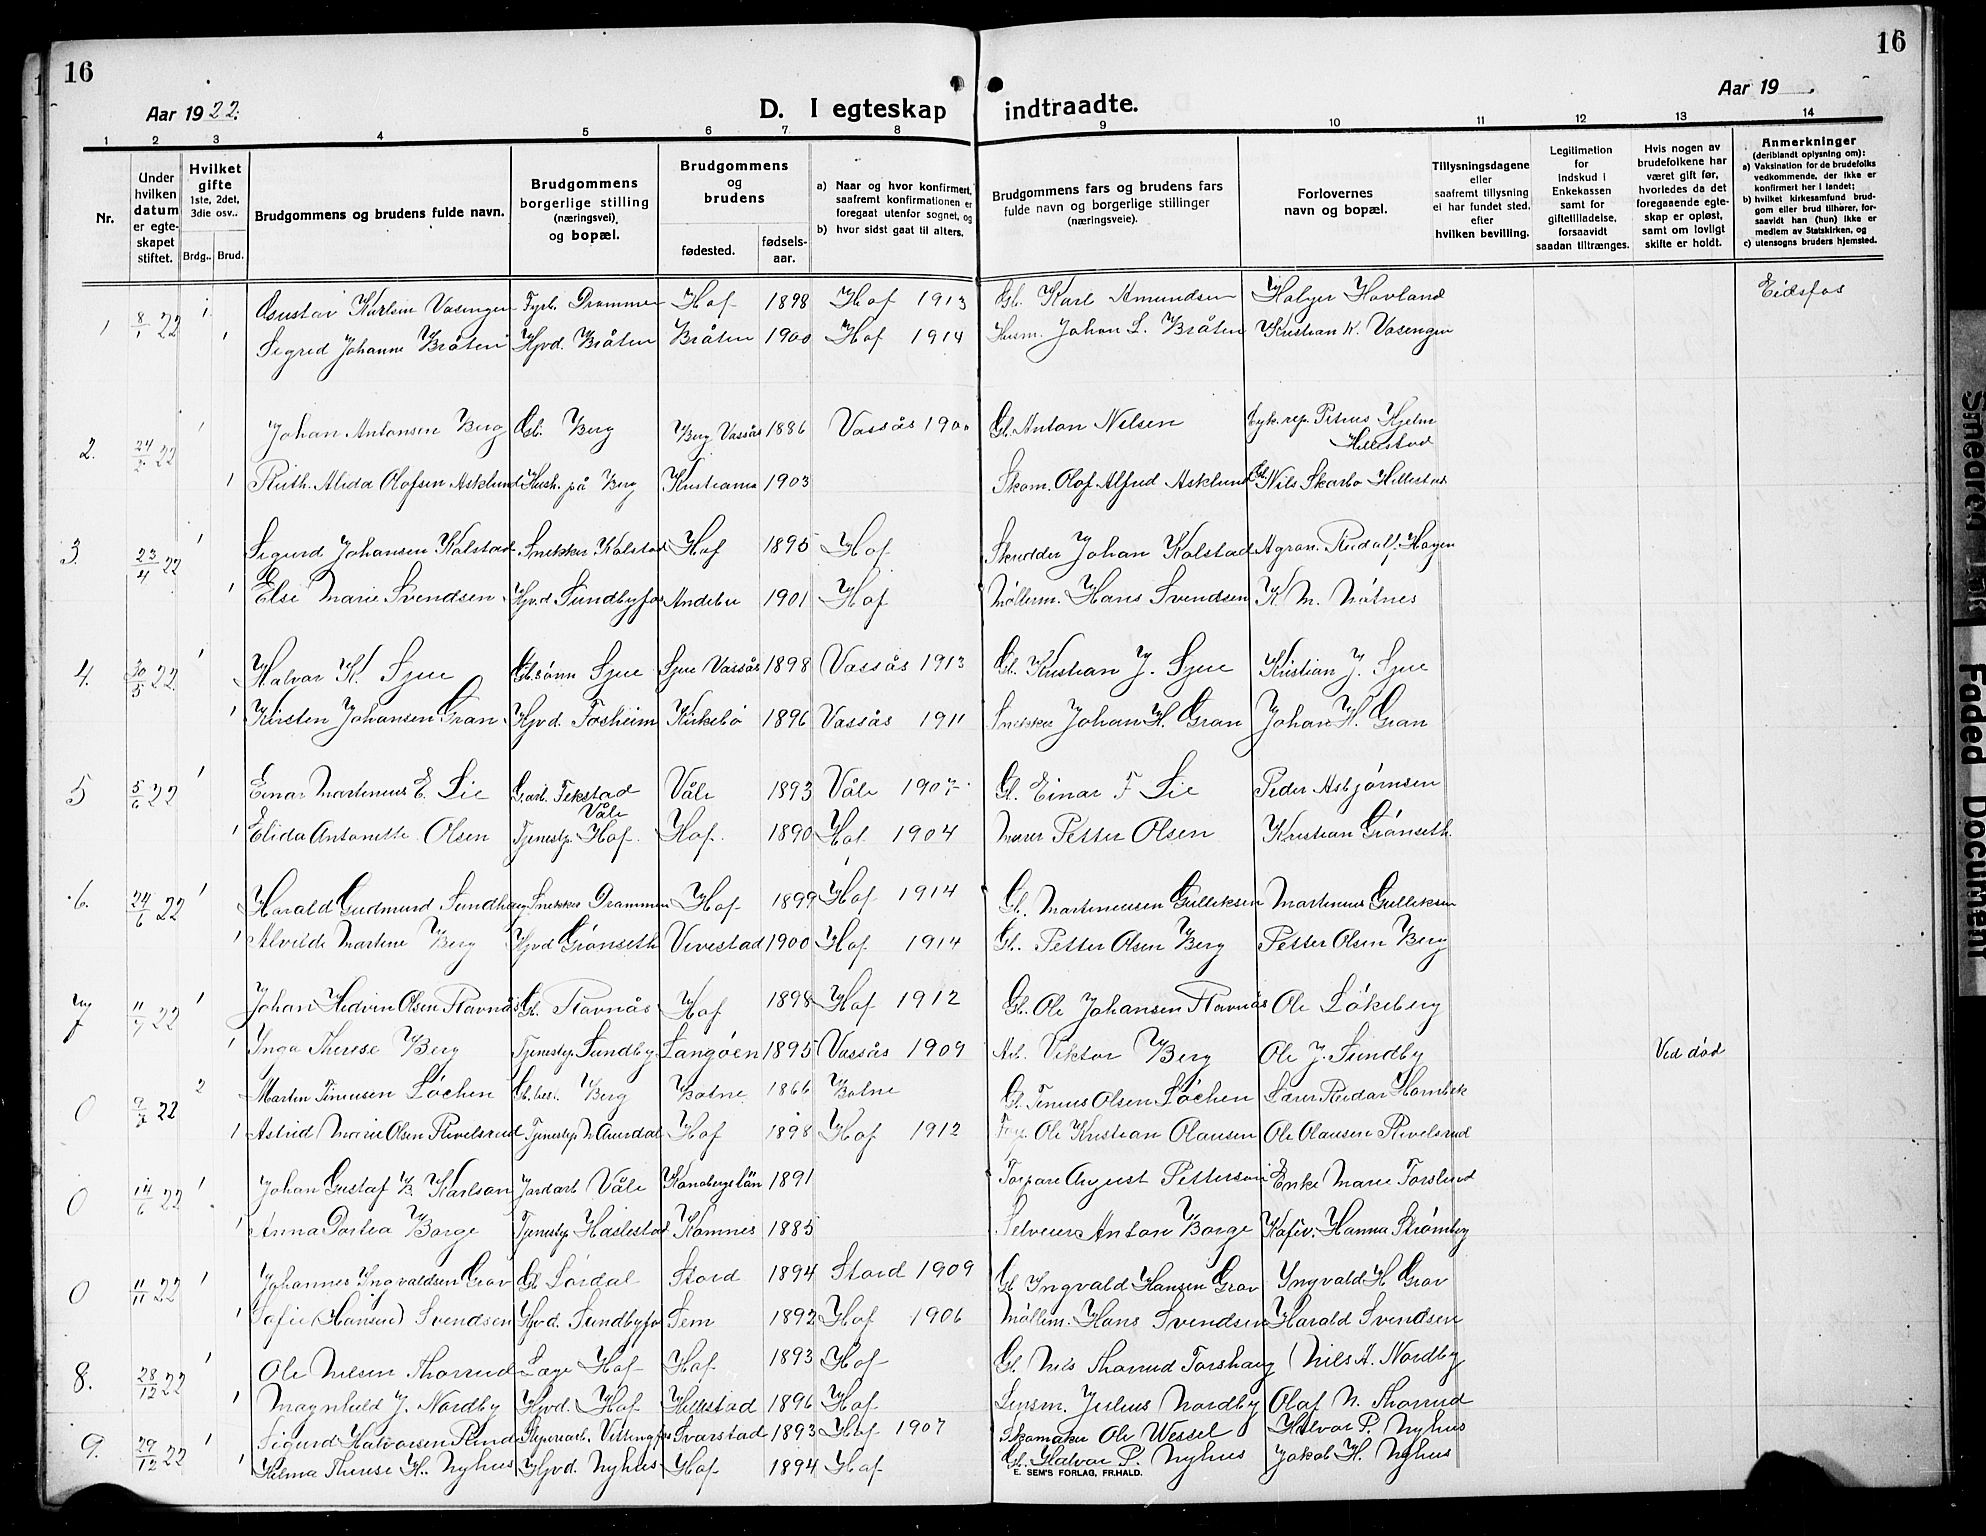 16
16
Aar 1922.
D. I egteskap indtraadte.
Aar 19
1 2 3 4 5 6 7 8 9 10 11 12 13 14
Nr.
Under hvilken datum er egteskapet stiftet.
Hvilket gifte 1ste, 2det, 3die osv..
Brdg.. Brud.
Brudgommens og brudens fulde navn.
Brudgommens borgerlige stilling (næringsvei), og bopæl.
Brudgommens og brudens
fødested.
fødselsaar.
a) Naar og hvor konfirmert, saafremt konfirmationen er foregaat utenfor sognet, og
b) hvor sidst gaat til alters.
Brudgommens fars og brudens fars fulde navn og borgerlige stillinger (næringsveie).
Forlovernes navn og bopæl.
Tillysningsdagene eller saafremt tillysning ei har fundet sted, efter hvilken bevilling.
Legitimation for indskud i Enkekassen samt for giftetilladelse, forsaavidt saadan tiltrænges.
Hvis nogen av brudefolkene har været gift før, hvorledes da det foregaaende egteskap er opløst, samt om lovligt skifte er holdt.
Anmerkninger (deriblandt oplysning om):
a) Vaksination for de brudefolks vedkommende, der ikke er konfirmert her i landet;
b) hvilket kirkesamfund brudgom eller brud tilhører, forsaavidt han (hun) ikke er medlem av Statskirken, og
c) utensogns bruders hjemsted.
1 8/1 22 1 Gustav Karlsen Vasengen Fyrb. Drammen Hof 1898 Hof 1913 Gb. Karl Amundsen Holger Hovland Eidsfos
1 Sigrid Johanne Bråten Hjvd. Bråten Bråten 1900 Hof 1914 Husm. Johan L. Bråten Kristian K. Vasengen
2. 24/2 22 1 Johan Antonsen Berg Gb. Berg Berg Vassås 1886 Vassås 1900 Gb. Anton Nilsen Cyk.rep. Petrus Hjelm Hillestad
1 Ruth Alida Olafsen Asklund Hush. på Berg Kristiania 1903 Skom. Olaf Alfred Asklund Gb. Nils Skarbo Hillestad
3. 23/4 22 1 Sigurd Johansen Kolstad Snekker Kolstad Hof 1895 Hof Skrædder Johan Kolstad Agron. Rudolf Hagen
1 Else Marie Svendsen Hjvd Sundbyfos Andebu 1901 Hof Møllerm. Hans Svendsen K. M. Nøtnes
4. 30/5 22 1 Halvar K. Sjue Gb.sønn Sjue Sjue Vassås 1898 Vassås 1913 Gb. Kristian J. Sjue Kristian J. Sjue
1 Kirsten Johansen Gran Hjvd. Fosheim Kirkebø 1896 Vassås 1911 Snekker Johan H. Gran Johan H. Gran
5 5/6 22 1 Einar Martinius E. Lie Garb. Tekstad Våle Våle 1893 Våle 1907 Gb. Einar F Lie Peder Asbjørnsen
1 Elida Antonette Olsen Tjenestp. Hof. Hof. 1890 Hof 1904 Murer Petter Olsen Kristian Grønseth
6. 24/6 22 1 Harald Gudmund Sundhaug Snekker Drammen Hof 1899 Hof 1914 Gb. Martiniusen Gulliksen Martinius Gulliksen
1 Alvilde Martine Berg Hjvd Grønseth Vivestad 1900 Hof 1914 Gb. Petter Olsen Berg Petter Olsen Berg
7 11/7 22 1 Johan Hedvin Olsen Ravnås Gb. Ravnås Hof 1898 Hof 1912 Gb. Ole Johansen Ravnås Ole Løkeberg
1 Inga Therese Berg Tjenestp. Sundby Langøen 1895 Vassås 1909 Arb. Viktor Berg Ole J. Sundby Ved død
0 22 2 Martin Tineusen Løchen Gb.bes. Berg Botne 1866 Botne Gb. Tinius Olsen Løchen Lærer Reidar Hornbek
1 Astrid Marie Olsen Rivelsrud Tjenestp N Aurdal Hof 1898 Hof 1912 Ole Kristian Olausen Ole Olausen Rivelsrud
0 14/6 22 1 Johan Gustaf B. Karlson Jordarb Våle 1891 Torpare August Petterson Enke Marie Torslund
1 Anna Dortea Borge Tjenestp Haslestad Komnes 1885 Selveier Anton Borge Kafév. Hanna Strømberg
0 11/11 22 1 Johannes Ingvaldsen Grov Gb Sørdal Stord 1894 Stord 1909 Gb Ingvald Hansen Grov Yngvald H Grov
1 Sofie (Hansine) Svendsen Hjvd. Sundbyfos Sem 1892 Hof 1906 Møllerm. Hans Svendsen Harald Svendsen
8. 28/12 22 1 Ole Nilsen Thorrud Læge Hof Hof 1893 Hof Gb. Nils Thorrud Torshaug Nils A. Nordby
1 Magnhild J. Nordby Hjvd. Hof Hillestad 1896 Hof Lensm. Julius Nordby Olaf N. Thorrud
9. 29/12 22 1 Sigurd Halvorsen Rud Slipeearb. Vittingfos Svarstad 1893 Hof 1907 Skomaker Ole Wessel Halvor P. Nyhus
1 Hilma Therese H. Nyhus Hjvd. Nyhus Hof 1894 Hof Gb. Halvor P. Nyhus Jakob H. Nyhus
E. SEM'S FORLAG, FR.HALD.
Smeared Ink
Faded Document